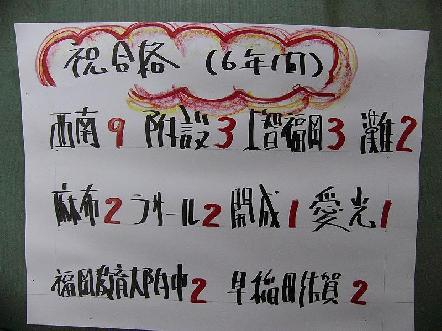 祝合格 (6年1国)
西南9 附設3 上智福岡3 灘2
麻布2 ラサール2 開成1 愛光1
福岡教育大附中2 早稲田佐賀2